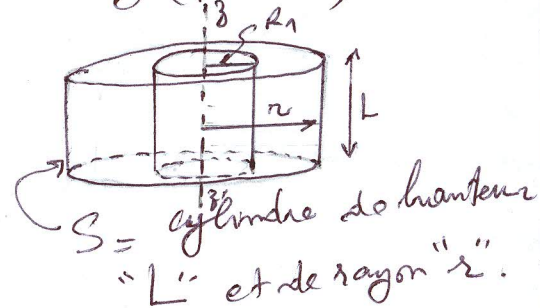 z
R1
r
L
z'
S = cylindre de hauteur
"L" et de rayon "r".